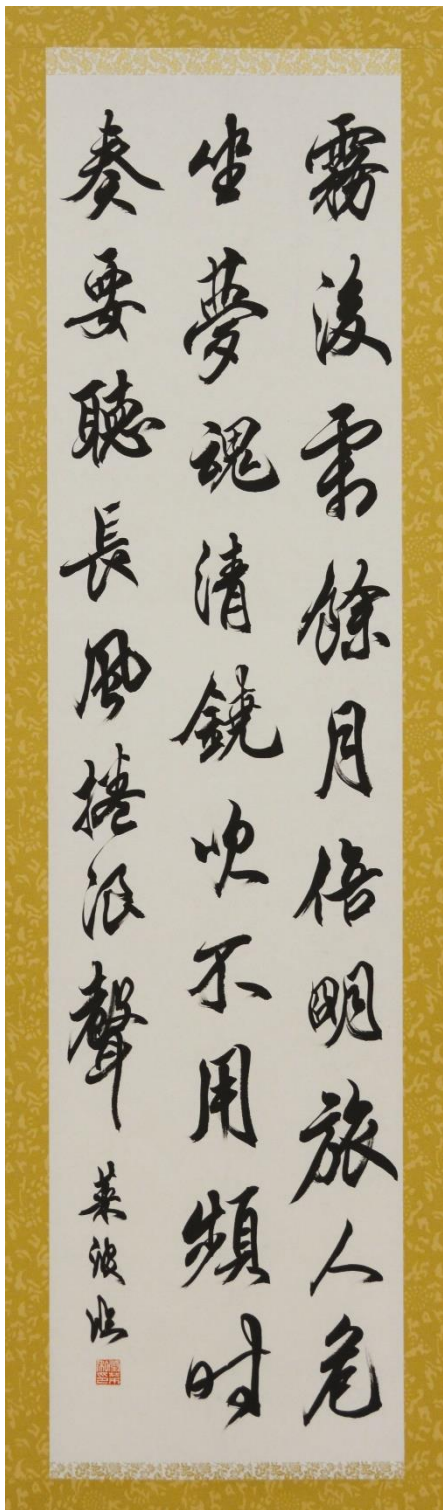 霧後霜餘月倍明旅人危
坐夢魂清鐃吹不用頻時
奏要聽長風捲浪聲
臨